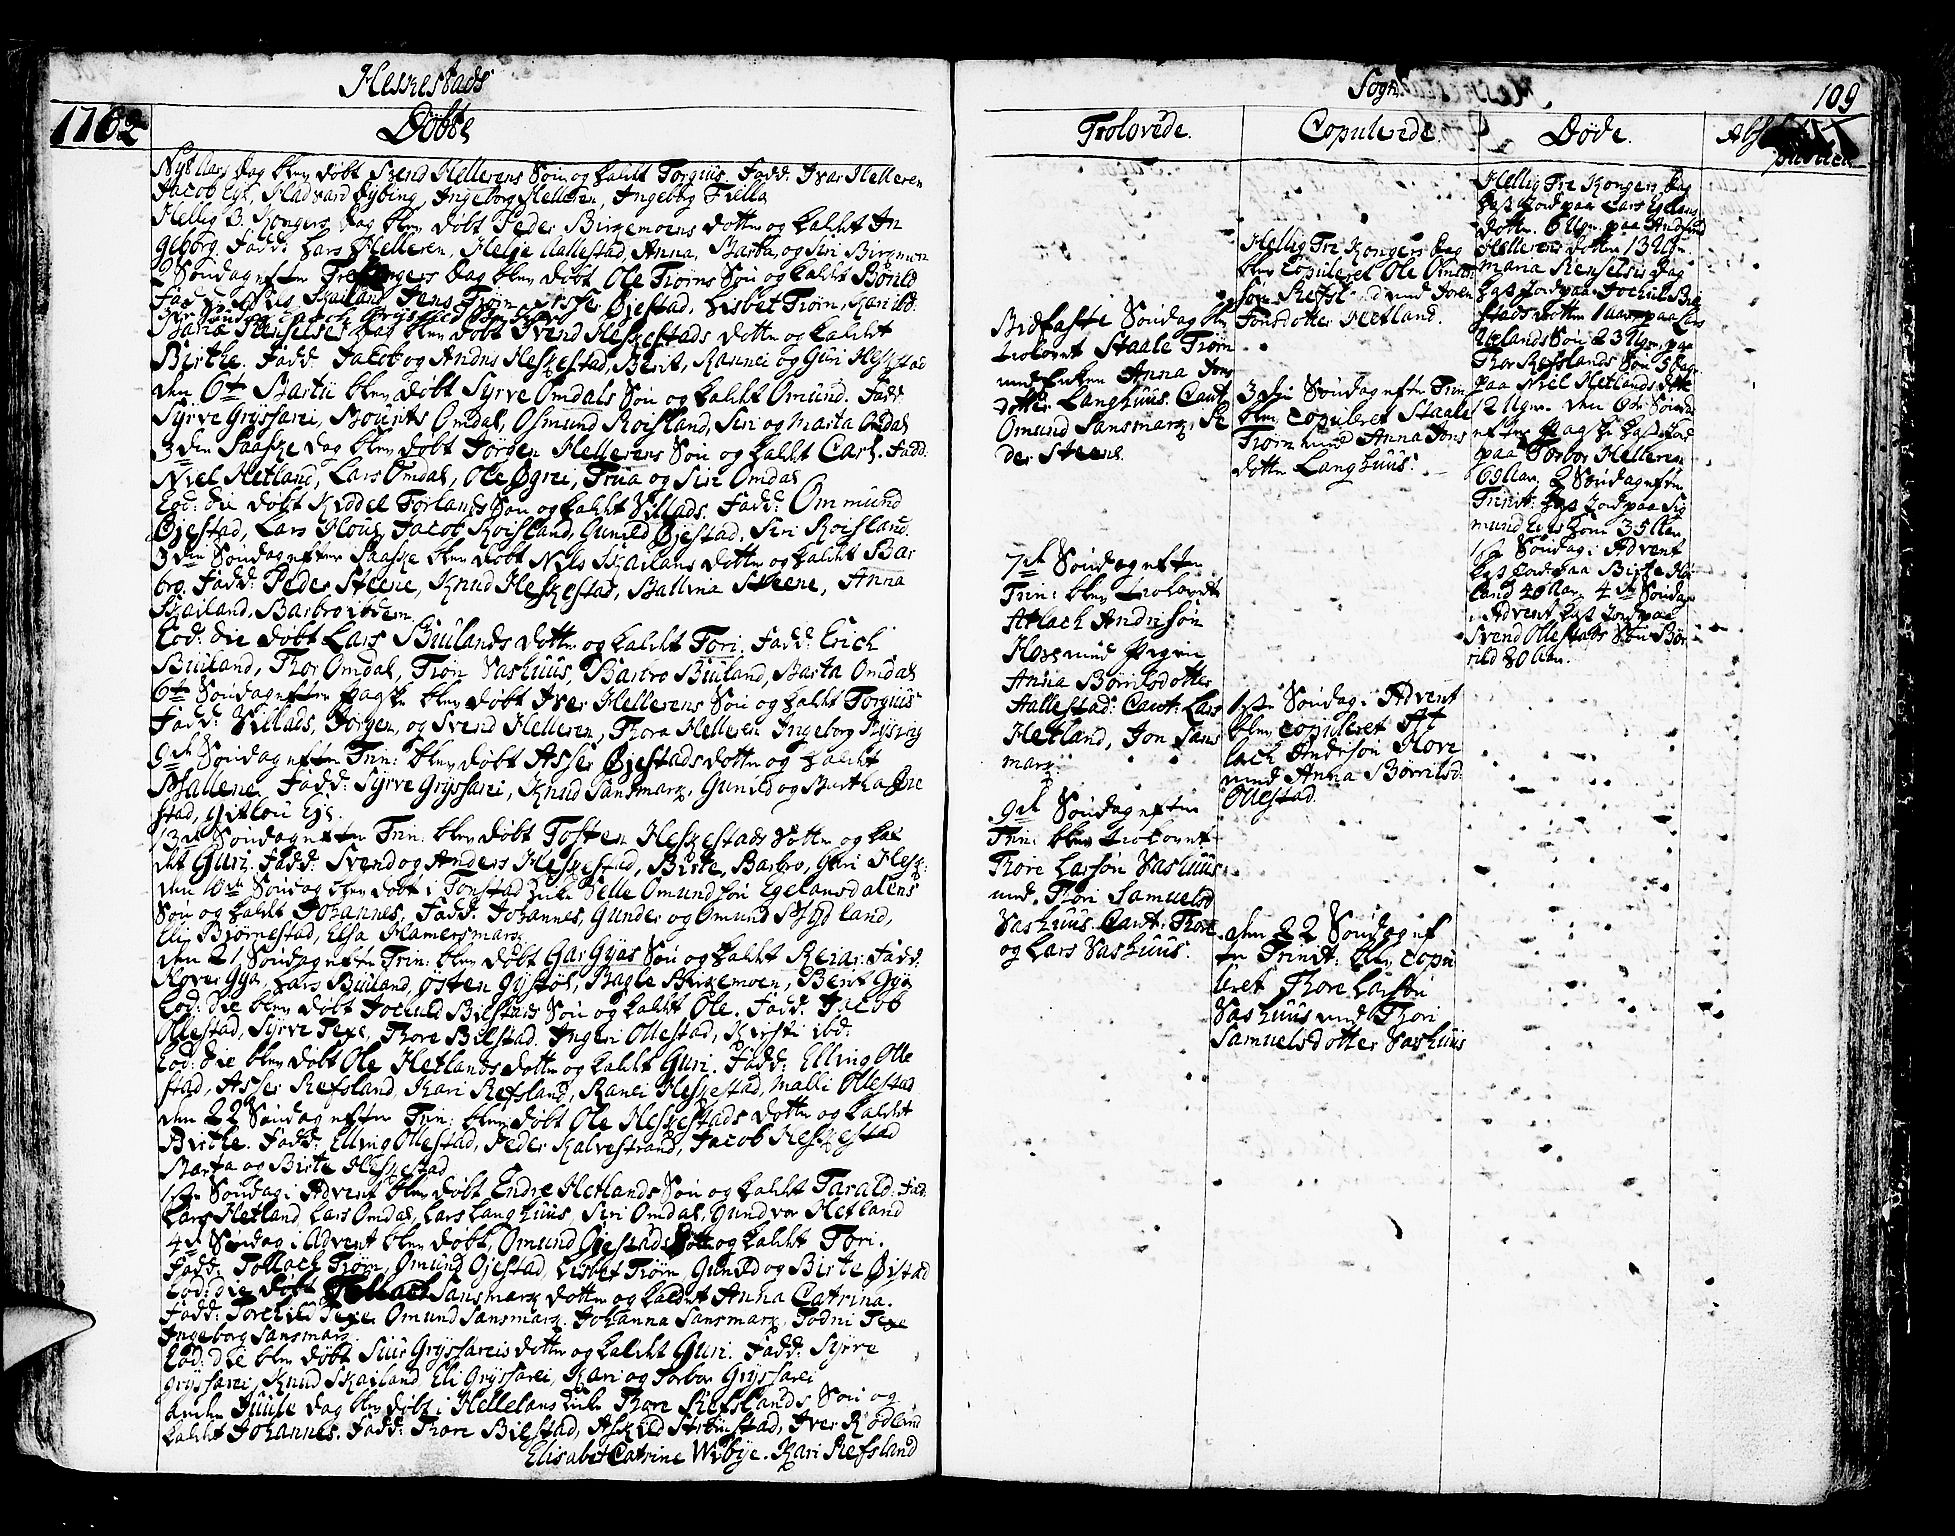 Heskestads
1762
Døbte
Nyt Aars Dag blev døbt Svend Hellerens Søn og kaldt Torgius. Fadd: Ivar Helleren
Jacob Eye, Hadvard Fysing, Ingeborg Helleren, Ingeborg
Hellig 3 Kongers Dag blev døbt Peder Birkemoens dotter og kaldt In
geborg. Fadd: Lars Helleren, Helge Aallestad, Anna, Marta, og Siri Birkmoen
2 Søndag efter Tre Kongers Dag blev døbt Ole Trøms Søn og kaldt Børild
Fadd: Skailand, Jens Trøm, Asser Øjestad, Lisbet Trøm, Kari ibd:
Maria Renselses Dag blev døbt Svend Heskestads dotter og kaldt
Birthe. Fadd: Jacob og Anders Heskestad, Berit, Rannei og Guri Heskestad
den 6te Martii blev døbt Syrve Omdals Søn og kaldt Omund. Fadd:
Syrve Gryssarei, Mourits Omdal, Osmund Roisland, Siri og Marta Omdal
3den Paaske dag blev døbt Jørgen Hellerens Søn og kaldt Carl. Fadd:
Niel Hetland, Lars Omdal, Ole Øgrei, Trua og Siri Omdal
Eod: die døbt Kiddel Torlands Søn og kaldt Villads. Fadd: Ommund
Øjestad, Lars Hous, Jacob Roisland, Gunild Øjestad, Siri Roisland.
3den Søndag efter Paaske blev døbt Nils Skailans dotter og kaldt Bar
bro. Fadd: Peder Steene, Knud Heskestad, Mallena Steene, Anna
Skailand, Barbro ibdem.
Eod: die døbt Lars Biulands dotter og kaldt Tori. Fadd: Erich
Biuland, Thor Omdal, Trøn Vashuus, Barbro Biuland, Marta Omdal
6te Søndag efter Paaske blev døbt Iver Hellerens Søn og kaldt Torguus
Fadd: Villads, Jørgen, og Svend Helleren, Thora Helleren Ingeborg Fysing
9de Søndag efter Trin: blev døbt Asser Øjestads dotter og kaldt
Mallene. Fadd: Syrve Gryssarei, Knud Sansmark, Gunild og Martha Øie
stad, Gitlou Eye.
13de Søndag efter Trin: blev døbt Tosten Heskestads Dotter og kal
det Guri. Fadd: Svend og Anders Heskestad, Birte, Barbro, Guri Hesk:
den 16de Søndag blev døbt i Tonstad Kirke Pelle Omundsøn Egelandsdalens
Søn og kaldt Johannes. Fadd: Johannes, Gunder og Omund Mydland,
Eli Biørnestad, Elsa Hamersmark
den 21 Søndag efter Trin: blev døbt Gar Gyas Søn og kaldt Reiar. Fadd:
Rover Gya, Lars Biuland, Østen Gystøl, Magle Birkemoen, Berit Gya
Eod: die blev døbt Jockuld Bilstads Søn og kaldt Ole. Fadd: Jacob
Ollestad, Syrve Texe, Thore Bilstad, Ingeri Ollestad, Kirsti ibd:
Eod: die blev døbt Ole Hetlands dotter og kaldt Guri. Fadd: Elling Olle
stad, Asser Refsland, Kari Refsland, Ranei Heskestad, Malli Ollestad
den 22 Søndag efter Trin: blev døbt Ole Heskestads dotter og kaldt
Birthe. Fadd: Elling Ollestad, Peder Kalvestrand, Jacob Heskestad
Marta og Birte Heskestad
1ste Søndag i Advent blev døbt Endre Hetlands Søn og kaldt Tarald. Fad:
Lars Hetland, Lars Omdal, Lars Langhuus, Siri Omdal, Gundvor Hetland
4de Søndag i Advent blev døbt Omund Øjestads Dotter og kaldt Tori.
Fadd: Tollach Trøm, Omund Øjestad, Lisbet Trøm, Gunild og Birte Øistad
Eod: die døbt Tollach Sansmark dotter og kaldet Anna Catrina.
Fadd: Torchild Texe, Omund Sansmark, Johanna Sansmark, Todni Texe
Ingeborg Sansmark.
Eod: die blev døbt Siur Gryssareis dotter og kaldt Guri. Fadd: Syrve
Gryssarei, Knud Skailand, Eli Gryssarei, Kari og Torbor Gryssarei
Anden Juule Dag blev døbt i Hellelans Kirke Thore Refslands Søn og
kaldt Johannes. Fadd: Thore Bilstad, Askild Strømstad, Iver Rodland
Elisabet Catrine Wibye. Kari Refsland
Sogn
109
Trolovede.
Midfaste Søndag blev
trolovet Staale Trøm
med Enken Anna Jons
dotter Langhuus. Caut:
Omund Sansmark, Pe
der Steene.
7de Søndag efter
Trin: blev trolovet
Atlach Andersøn
Hove med Pigen
Anna Børrildsdotter
Aallestad: Caut: Lars
Hetland, Jon Sans
mark
9de Søndag efter
Trin: blev trolovet
Thore Larsøn Vashuus
med Thori Samuelsd
Vashuus. Caut: Thore
og Lars Vashuus.
Copulerede.
Hellig Tre Kongers Dag
blev Copuleret Ole Omund
søn Refsland med Joren
Jonsdotter Hetland.
3die Søndag efter Trin
blev copuleret Staale
Trøm med Anna Jons
dotter Langhuus.
1ste Søndag i Advent
blev copuleret At
lach Andersøn Hove
med Anna Børrilsd:
Ollestad.
den 22 Søndag ef
ter Trinit: blev Copu
leret Thore Larsøn
Vashuus med Thori
Samuelsdotter Vashuus
Døde.
Hellig Tre Kongers Dag
kast Jord paa Lars Egelans
dotter 6 Ugr. paa Anders
Hellerens dotter 13 Ugr.
Maria Renselsis Dag
kast Jord paa Jochul Bil
stads dotter 1 Aar, paa Lars
Uelands Søn 23 Ugr. paa
Thor Refslands Søn 5 Dage
paa Niel Hetlands dotter
12 Ugr. den 6de Søndag
efter Paaske kast Jord
paa Torbor Helleren
69 Aar, 2 Søndag efter
Trinit: kast Jord paa Sig
mund 35 Aar
1ste Søndag i Advent
kast Jord paa Birte
land 20 Aar. 4de Søndag
i Advent kast Jord paa
Svend Ollestads Søn Bør
rild 30 Aar.